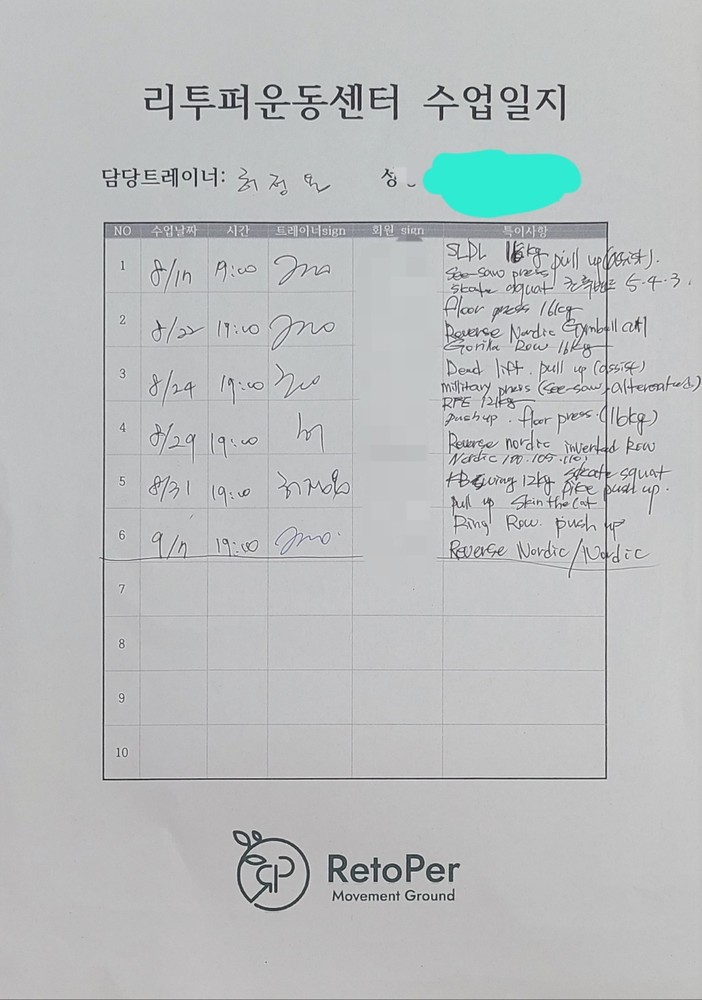 리투퍼운동센터 수업일지
담당트레이너: 허정
NO 수업날짜 시간 트레이너sign 회원 sign 특이사항
1 8/17 19:00 SLDL 16kg pull up (assist).
see-saw press
skate squat 5.4.3.
2 8/22 19:00 floor press 16kg
Reverse Nordic
Gorilla Row 16kg
3 8/24 19:00 Dead lift. pull up (assist)
millitary press (see-saw, alternated.)
RFE 12kg
4 8/29 19:00 push up. floor press. (16kg)
Reverse nordic inverted Row
Nordic 100.105.110.
5 8/31 19:00 허정 swing 12kg skate squat
pull up skin the cat pike push up.
6 9/7 19:00 Ring Row. push up
Reverse Nordic/Nordic
7
8
9
10
RetoPer
Movement Ground